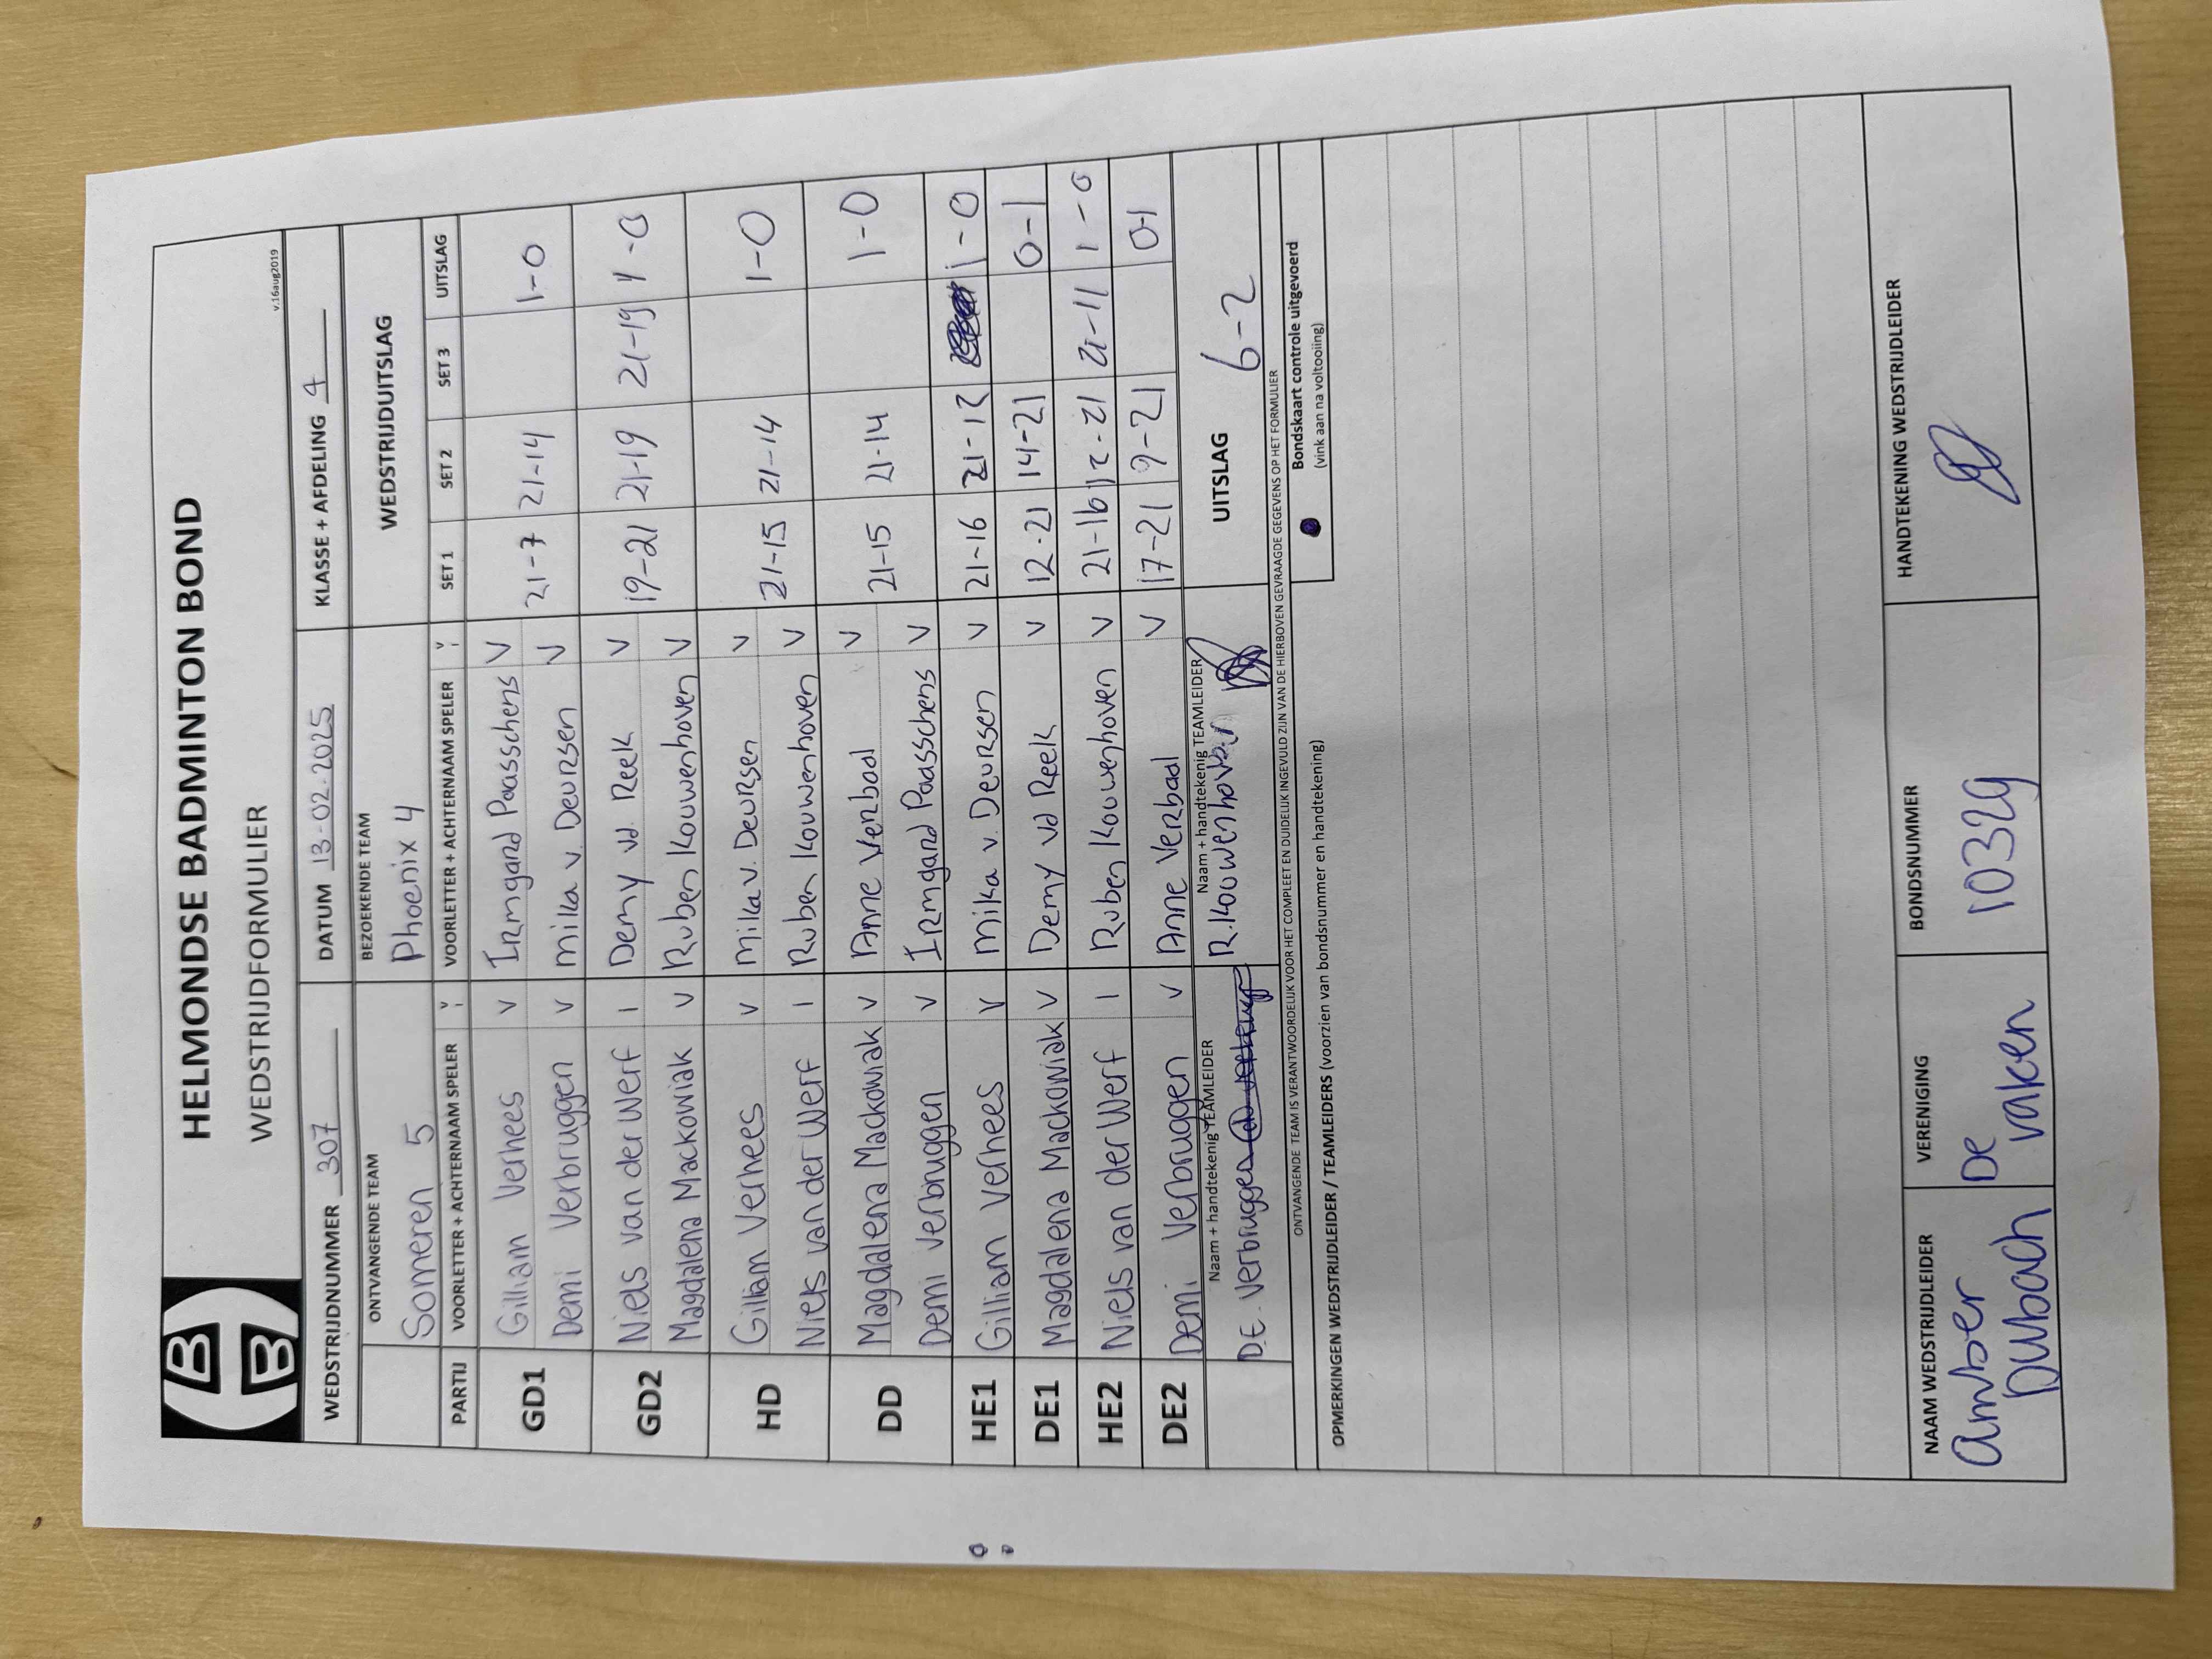 HELMONDSE BADMINTON BOND
WEDSTRIJDFORMULIER
v.16aug2019
WEDSTRIJDNUMMER 307 DATUM 13-02-2025 KLASSE + AFDELING 4
ONTVANGENDE TEAM BEZOEKENDE TEAM WEDSTRIJDUITSLAG
Someren 5 Phoenix 4
PARTIJ VOORLETTER + ACHTERNAAM SPELER V VOORLETTER + ACHTERNAAM SPELER V SET 1 SET 2 SET 3 UITSLAG
GD1 Gilliam Verhees V Irmgard Paasschens V 21-7 21-14 1-0
Demi Verbruggen V Mika v. Deursen V
GD2 Niels van der Werf I Demy vd. Reek V 19-21 21-19 21-19 1-0
Magdalena Mackowiak V Ruben Kouwenhoven V
HD Gilliam Verhees V Mika v. Deursen V 21-15 21-14 1-0
Niels van der Werf I Ruben Kouwenhoven V
DD Magdalena Mackowiak V Anne Verbaal V 21-15 21-14 1-0
Demi Verbruggen V Irmgard Paasschens V
HE1 Gilliam Verhees V Mika v. Deursen V 21-16 21-12 1-0
DE1 Magdalena Mackowiak V Demy vd Reek V 12-21 14-21 0-1
HE2 Niels van der Werf I Ruben Kouwenhoven V 21-16 12-21 21-11 1-0
DE2 Demi Verbruggen V Anne Verbaal V 17-21 9-21 0-1
Naam + handtekenig TEAMLEIDER Naam + handtekenig TEAMLEIDER UITSLAG 6-2
D.E. Verbruggen R. Kouwenhoven
ONTVANGENDE TEAM IS VERANTWOORDELIJK VOOR HET COMPLEET EN DUIDELIJK INGEVULD ZIJN VAN DE HIERBOVEN GEVRAAGDE GEGEVENS OP HET FORMULIER
Bondskaart controle uitgevoerd
(vink aan na voltooiing)
OPMERKINGEN WEDSTRIJDLEIDER / TEAMLEIDERS (voorzien van bondsnummer en handtekening)
NAAM WEDSTRIJDLEIDER VERENIGING BONDSNUMMER HANDTEKENING WEDSTRIJDLEIDER
Amber De 10329
Dubach vaken